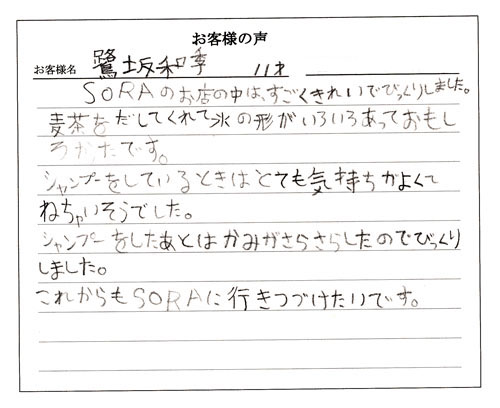 お客様の声
お客様名 鷺坂和季 11才
SORAのお店の中は、すごくきれいでびっくりしました。
麦茶をだしてくれて氷の形がいろいろあっておもし
ろかったです。
シャンプーをしているときはとても気持ちがよくて
ねちゃいそうでした。
シャンプーをしたあとはかみがさらさらしたのでびっくり
しました。
これからもSORAに行きつづけたいです。